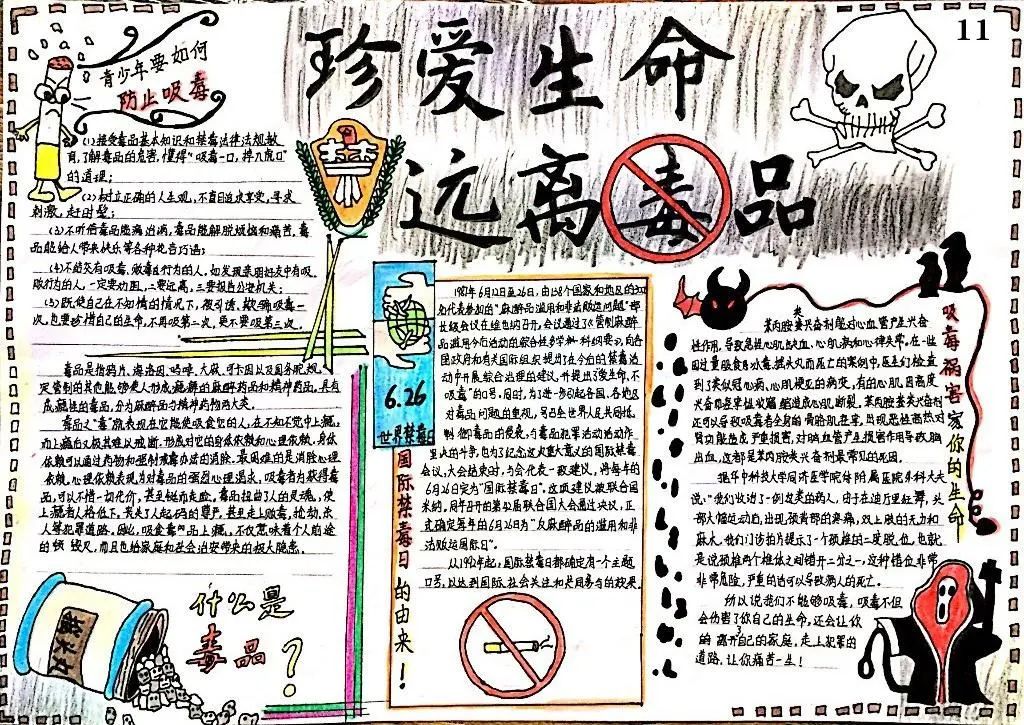 11
珍爱生命
远离毒品
青少年要如何
防止吸毒
(1)接受毒品基本知识和禁毒法律法规教
育,了解毒品的危害,懂得“吸毒一口,掉入虎口”
的道理;
(2)树立正确的人生观,不盲目追求享受,寻求
刺激,赶时髦;
(3)不听信毒品能治病,毒品能解脱烦恼和痛苦,毒
品能给人带来快乐等各种花言巧语;
(4)不结交有吸毒、贩毒行为的人,如发现亲朋好友中有吸、
贩行为的人,一定要劝阻,二要远离,三要报告公安机关;
(5)既使自己在不知情的情况下,被引诱、欺骗吸毒一
次,也要珍惜自己的生命,不再吸第二次,更不要吸第三次.
毒品是指鸦片、海洛因、吗啡、大麻、可卡因以及国务院规
定管制的其它能够使人形成瘾癖的麻醉药品和精神药品,具有
成瘾性的毒品,分为麻醉药品与精神药物两大类.
依赖可以通过药物和强制戒毒办法的消除,最困难的是消除心理
依赖,心理依赖表现为对毒品的强烈心理渴求,吸毒者为获得毒
品,可以不惜一切代价,甚至铤而走险,毒品扭曲了人的灵魂,使
上瘾者人格低下,丧失了人起码的尊严,甚至走上贩毒、抢劫、杀
人等犯罪道路,因此,吸食毒品上瘾,不仅意味着个人前途
什么是
毒品?
6.26
世界禁毒日
国际禁毒日的由来!
1987年6月12日至26日,由138个国家和地区的3000
名代表参加的“麻醉品滥用和非法贩运问题”部
长级会议在维也纳召开,会议通过了《管制麻醉
品滥用今后活动的综合性多学科纲要》,向各
国政府和有关国际组织提出了在今后的禁毒活
动中开展综合治理的建议,并提出了“爱生命,不
吸毒”的口号,同时,为了进一步引起各国、各地区
对毒品问题的重视,号召全世界人民共同抵
会议,大会结束时,与会代表一致建议,将每年的
6月26日定为“国际禁毒日”,这项建议被联合国
采纳,同年召开的第42届联合国大会通过决议,正
式确定每年的6月26日为“反麻醉品的滥用和非
法贩运国际日”.
从1992年起,国际禁毒日都确定有一个主题
口号,以达到国际社会关注和共同参与的效果.
吸毒祸害家你的生命
类
苯丙胺兴奋剂能对心血管产生兴奋
性作用,导致急性心肌缺血、心肌病和心律失常,在一些
因过量吸食冰毒、摇头丸而死亡的案例中,医生们检查
到了类似冠心病、心肌梗死的病变,有的心肌因高度
还可以导致吸毒者全身的骨骼肌痉挛,出现恶性高热,对
肾功能造成严重损害,对脑血管产生损害作用导致脑
出血,这都是苯丙胺类兴奋剂最常见的死因.
据华中科技大学同济医学院附属医院外科大夫
说:“我们收治了一例这类的病人,由于在迪厅里狂舞,头
部大幅运动后,出现颈背部的疼痛,双上肢的无力和
麻木,我们门诊拍片提示了一个颈椎的一度脱位,也就
是说颈椎两个椎体之间错开三分之一,这种错位非常
非常危险,严重的话可以导致病人的死亡.
所以说我们不能够吸毒,吸毒不但
会伤害了你自己的生命,还会让你
的离开自己的家庭,走上犯罪的
道路,让你痛苦一生!